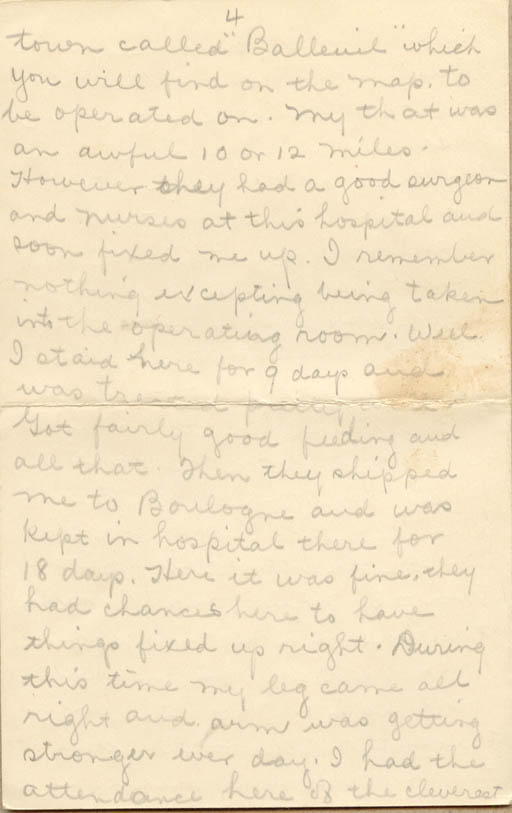 4
town called "Balleuil" which
you will find on the map. to
be operated on. My that was
an awful 10 or 12 miles.
However they had a good surgeon
and nurses at this hospital and
soon fixed me up. I remember
nothing excepting being taken
into the operating room. Well
I staid here for 9 days and
was treated
Got fairly good feeding and
all that. Then they shipped
me to Boulogne and was
kept in hospital there for
18 days. Here it was fine, they
had chances here to have
things fixed up right. During
this time my leg came all
right and arm was getting
stronger ever day. I had the
attendance here of the cleverest